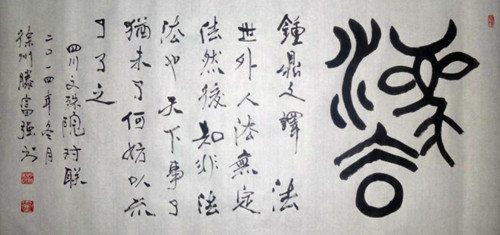 灋
鍾鼎文譯 法
世外人法無定
法然後知非法
法也天下事了
猶未了何妨以不
了了之
四川文殊院对联
二〇一四年冬月
徐州滕富强书